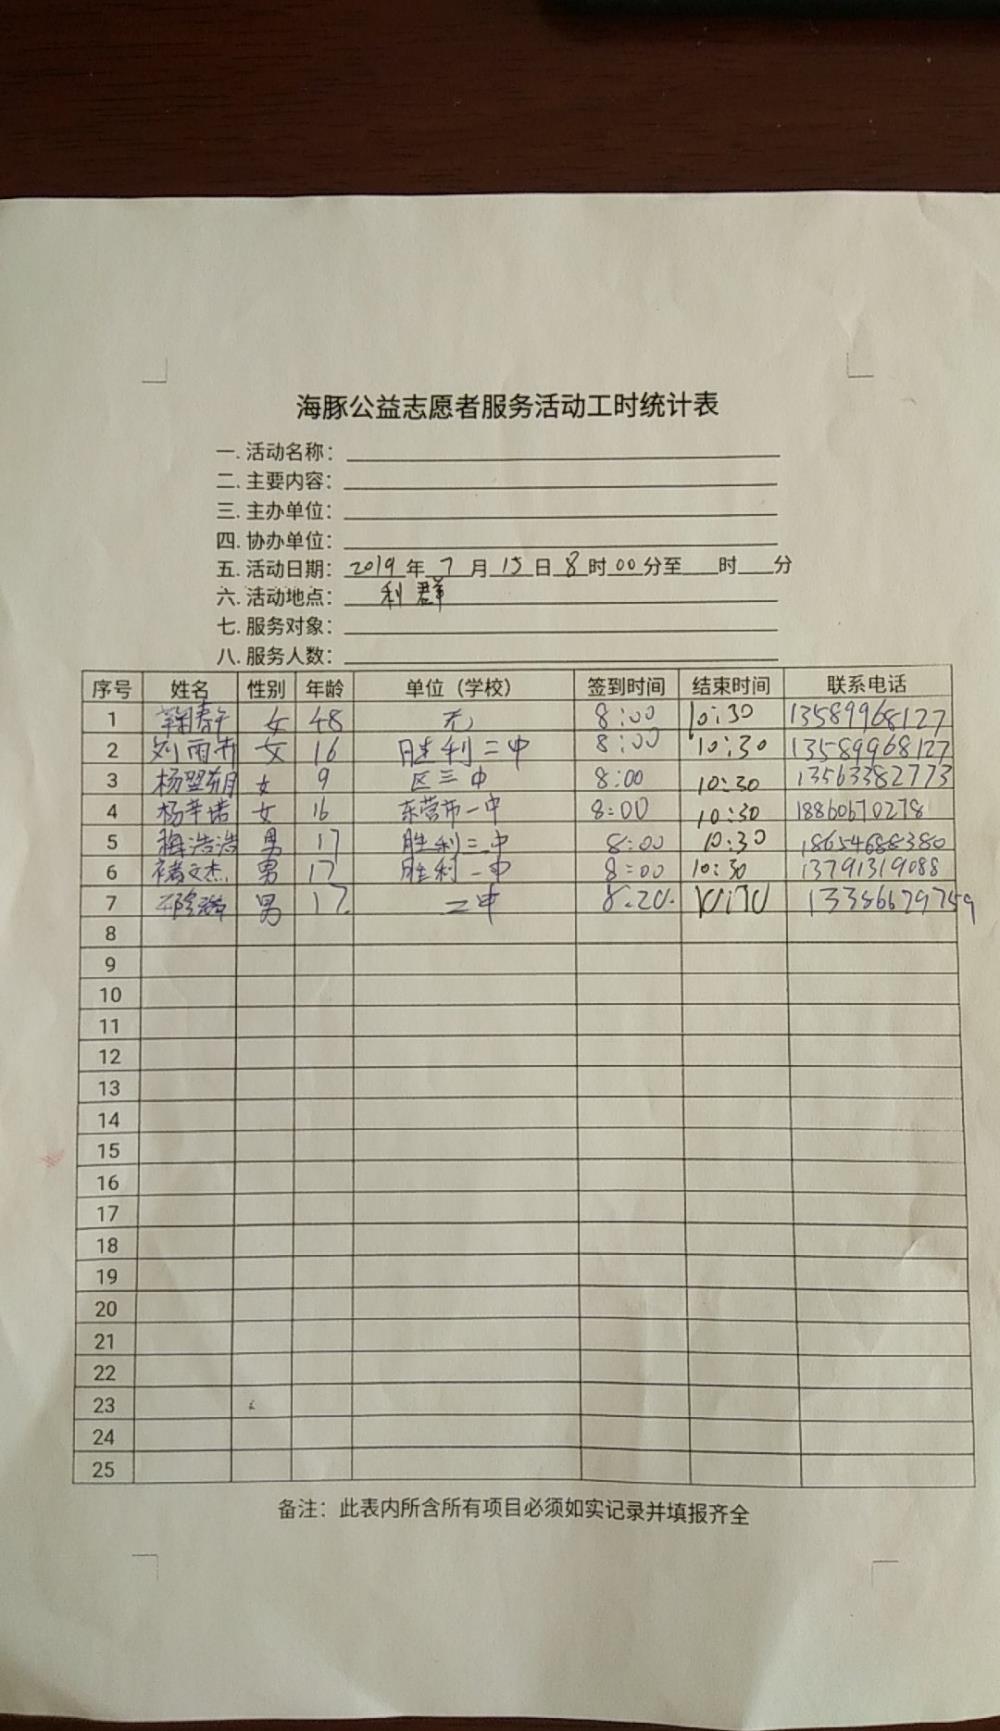 海豚公益志愿者服务活动工时统计表
一. 活动名称：
二. 主要内容：
三. 主办单位：
四. 协办单位：
五. 活动日期： 2019 年 7 月 15 日 8 时 00 分至 时 分
六. 活动地点： 利群
七. 服务对象：
八. 服务人数：
序号 姓名 性别 年龄 单位（学校） 签到时间 结束时间 联系电话
1 女 48 无 8:00 10:30 13589968127
2 刘雨卉 女 16 胜利二中 8:00 10:30 13589968127
3 杨盟朝 女 9 区三中 8:00 10:30 13563382773
4 杨芊诺 女 16 东营市一中 8:00 10:30 18860670278
5 梅浩浩 男 17 胜利二中 8:00 10:30 18654688380
6 褚文杰 男 17 胜利一中 8:00 10:30 13791319088
7 男 17. 二中 8.20.
8
9
10
11
12
13
14
15
16
17
18
19
20
21
22
23
24
25
备注：此表内所含所有项目必须如实记录并填报齐全